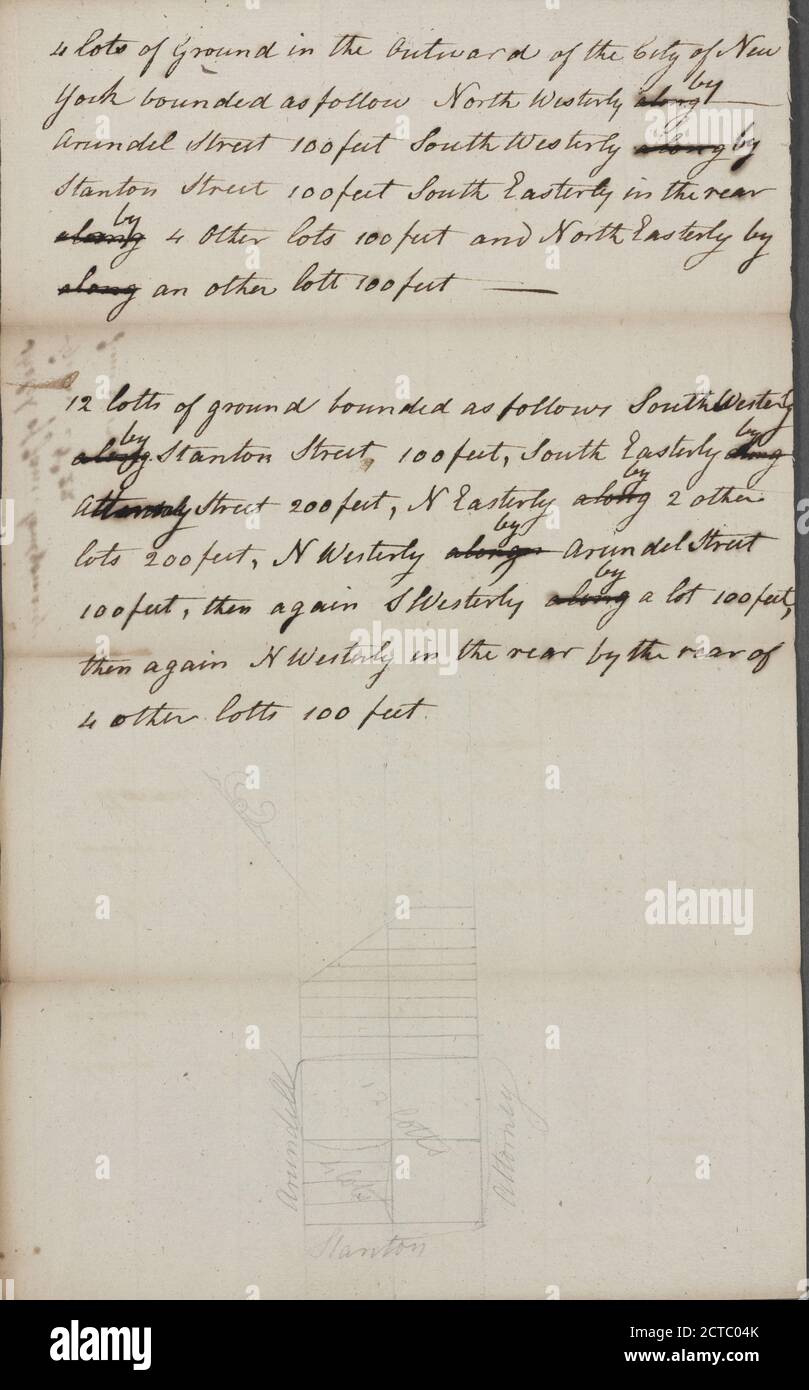 4 lots of Ground in the Outward of the City of New
York bounded as follow North Westerly along by
Arundel Street 100 feet South Westerly along by
Stanton Street 100 feet South Easterly in the rear
along by 4 Other lots 100 feet and North Easterly by
along an other lott 100 feet
12 lotts of ground bounded as follows South Westerly
along by Stanton Street, 100 feet, South Easterly along by
Street 200 feet, N Easterly along by 2 other
lots 200 feet, N Westerly along by Arundel Street
100 feet, then again S Westerly along by a lot 100 feet,
then again N Westerly in the rear by the rear of
4 other lotts 100 feet
Arundell
lotts
Attorney
4 lotts
Stanton
alamy
Image ID: 2CTC04K
www.alamy.com